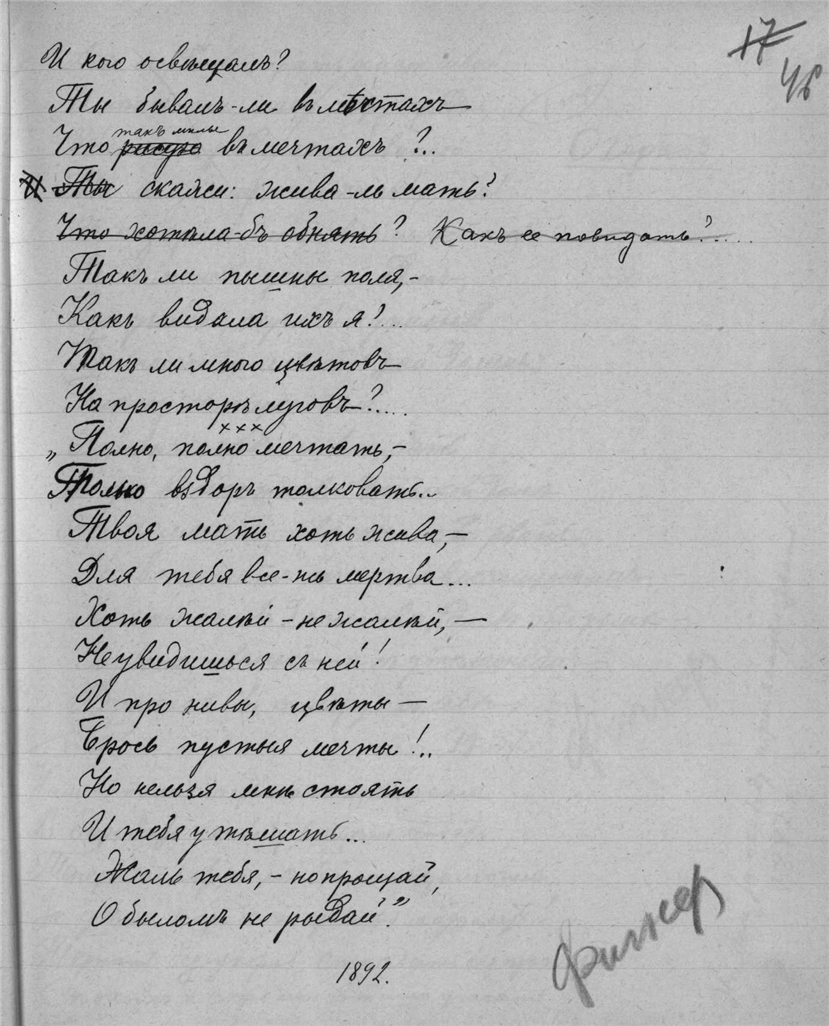 17
46
И кого освѣщалъ?
Ты бывалъ-ли въ мѣстахъ
такъ милы
Что рисую въ мечтахъ?..
И Ты скажи: жива-ль мать?
Что хотѣла-бъ обнять? Какъ ее повидать?.....
Такъ ли пышны поля,-
Какъ видала ихъ я!...
Такъ ли много цвѣтовъ
На просторѣ луговъ?....
× × ×
„Полно, полно мечтать,-
Только вздоръ толковать..
Твоя мать хоть жива,—
Для тебя все-же мертва...
Хоть жалѣй - не жалѣй,—
Не увидишься съ ней!
И про нивы, цвѣты—
Брось пустыя мечты!..
Но нельзя мнѣ стоять
И тебя утѣшать...
Жаль тебя,- но прощай,
О быломъ не рыдай."
1892.
Фигнер